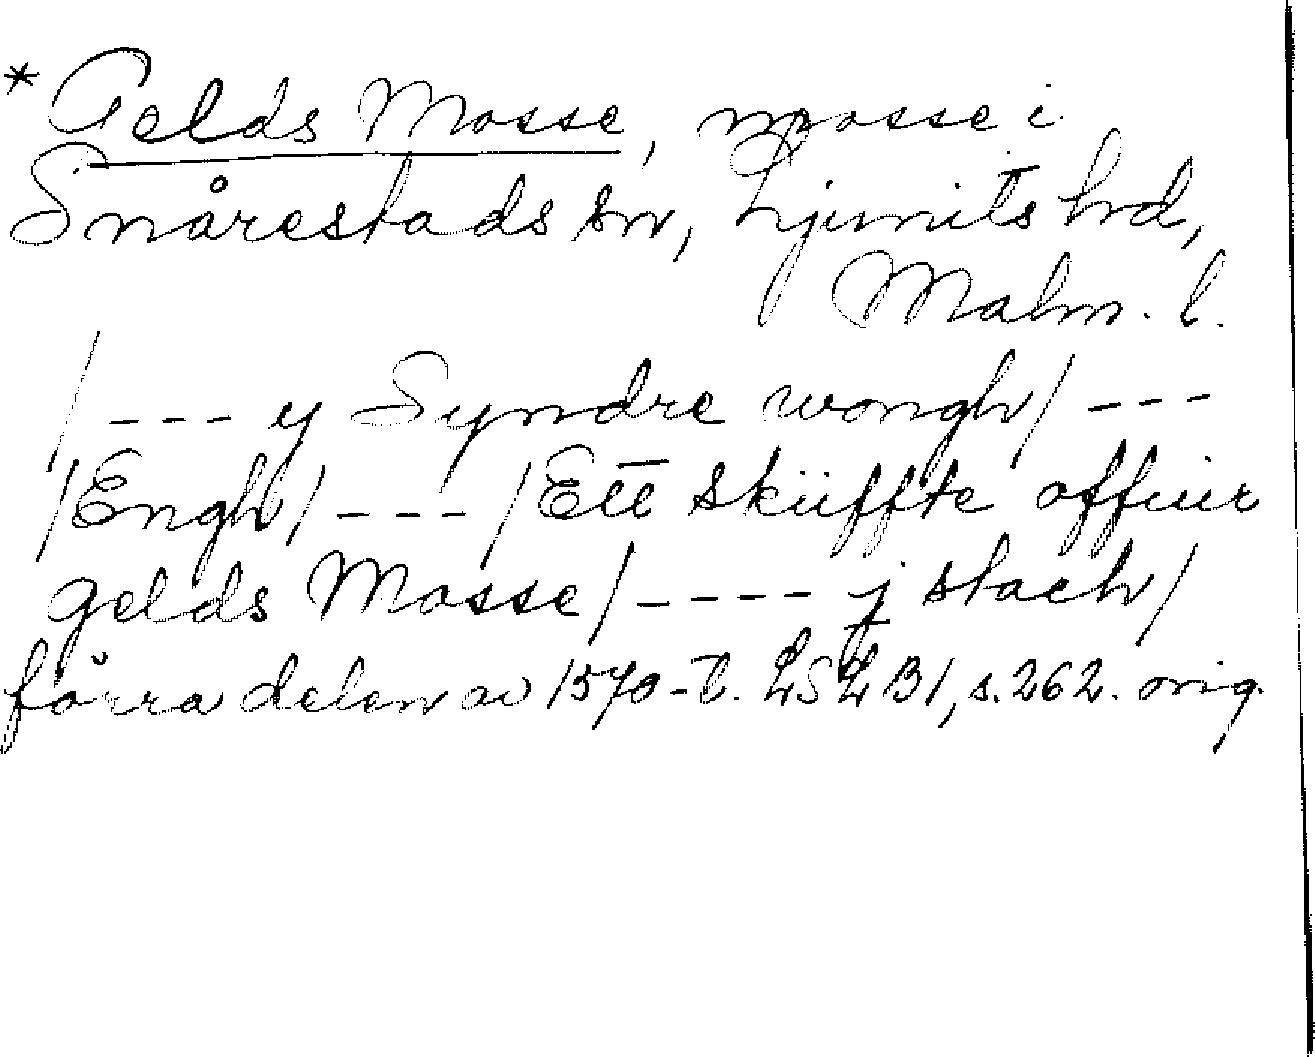 * Gelds Mosse, mosse i
Snårestads sn, Ljunits hd,
Malm. l.
/--- y Syndre wongh/ ---
/Engh/ --- /Ett skiiffte offuer
gelds Mosse/---- j stach/
förra delen av 1570-t. LSLB1, s. 262. orig.